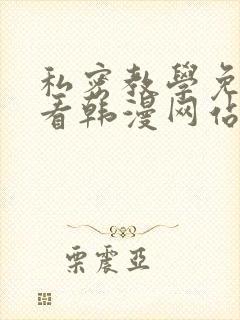 私密教學免
看韩漫网佔
栗震亞